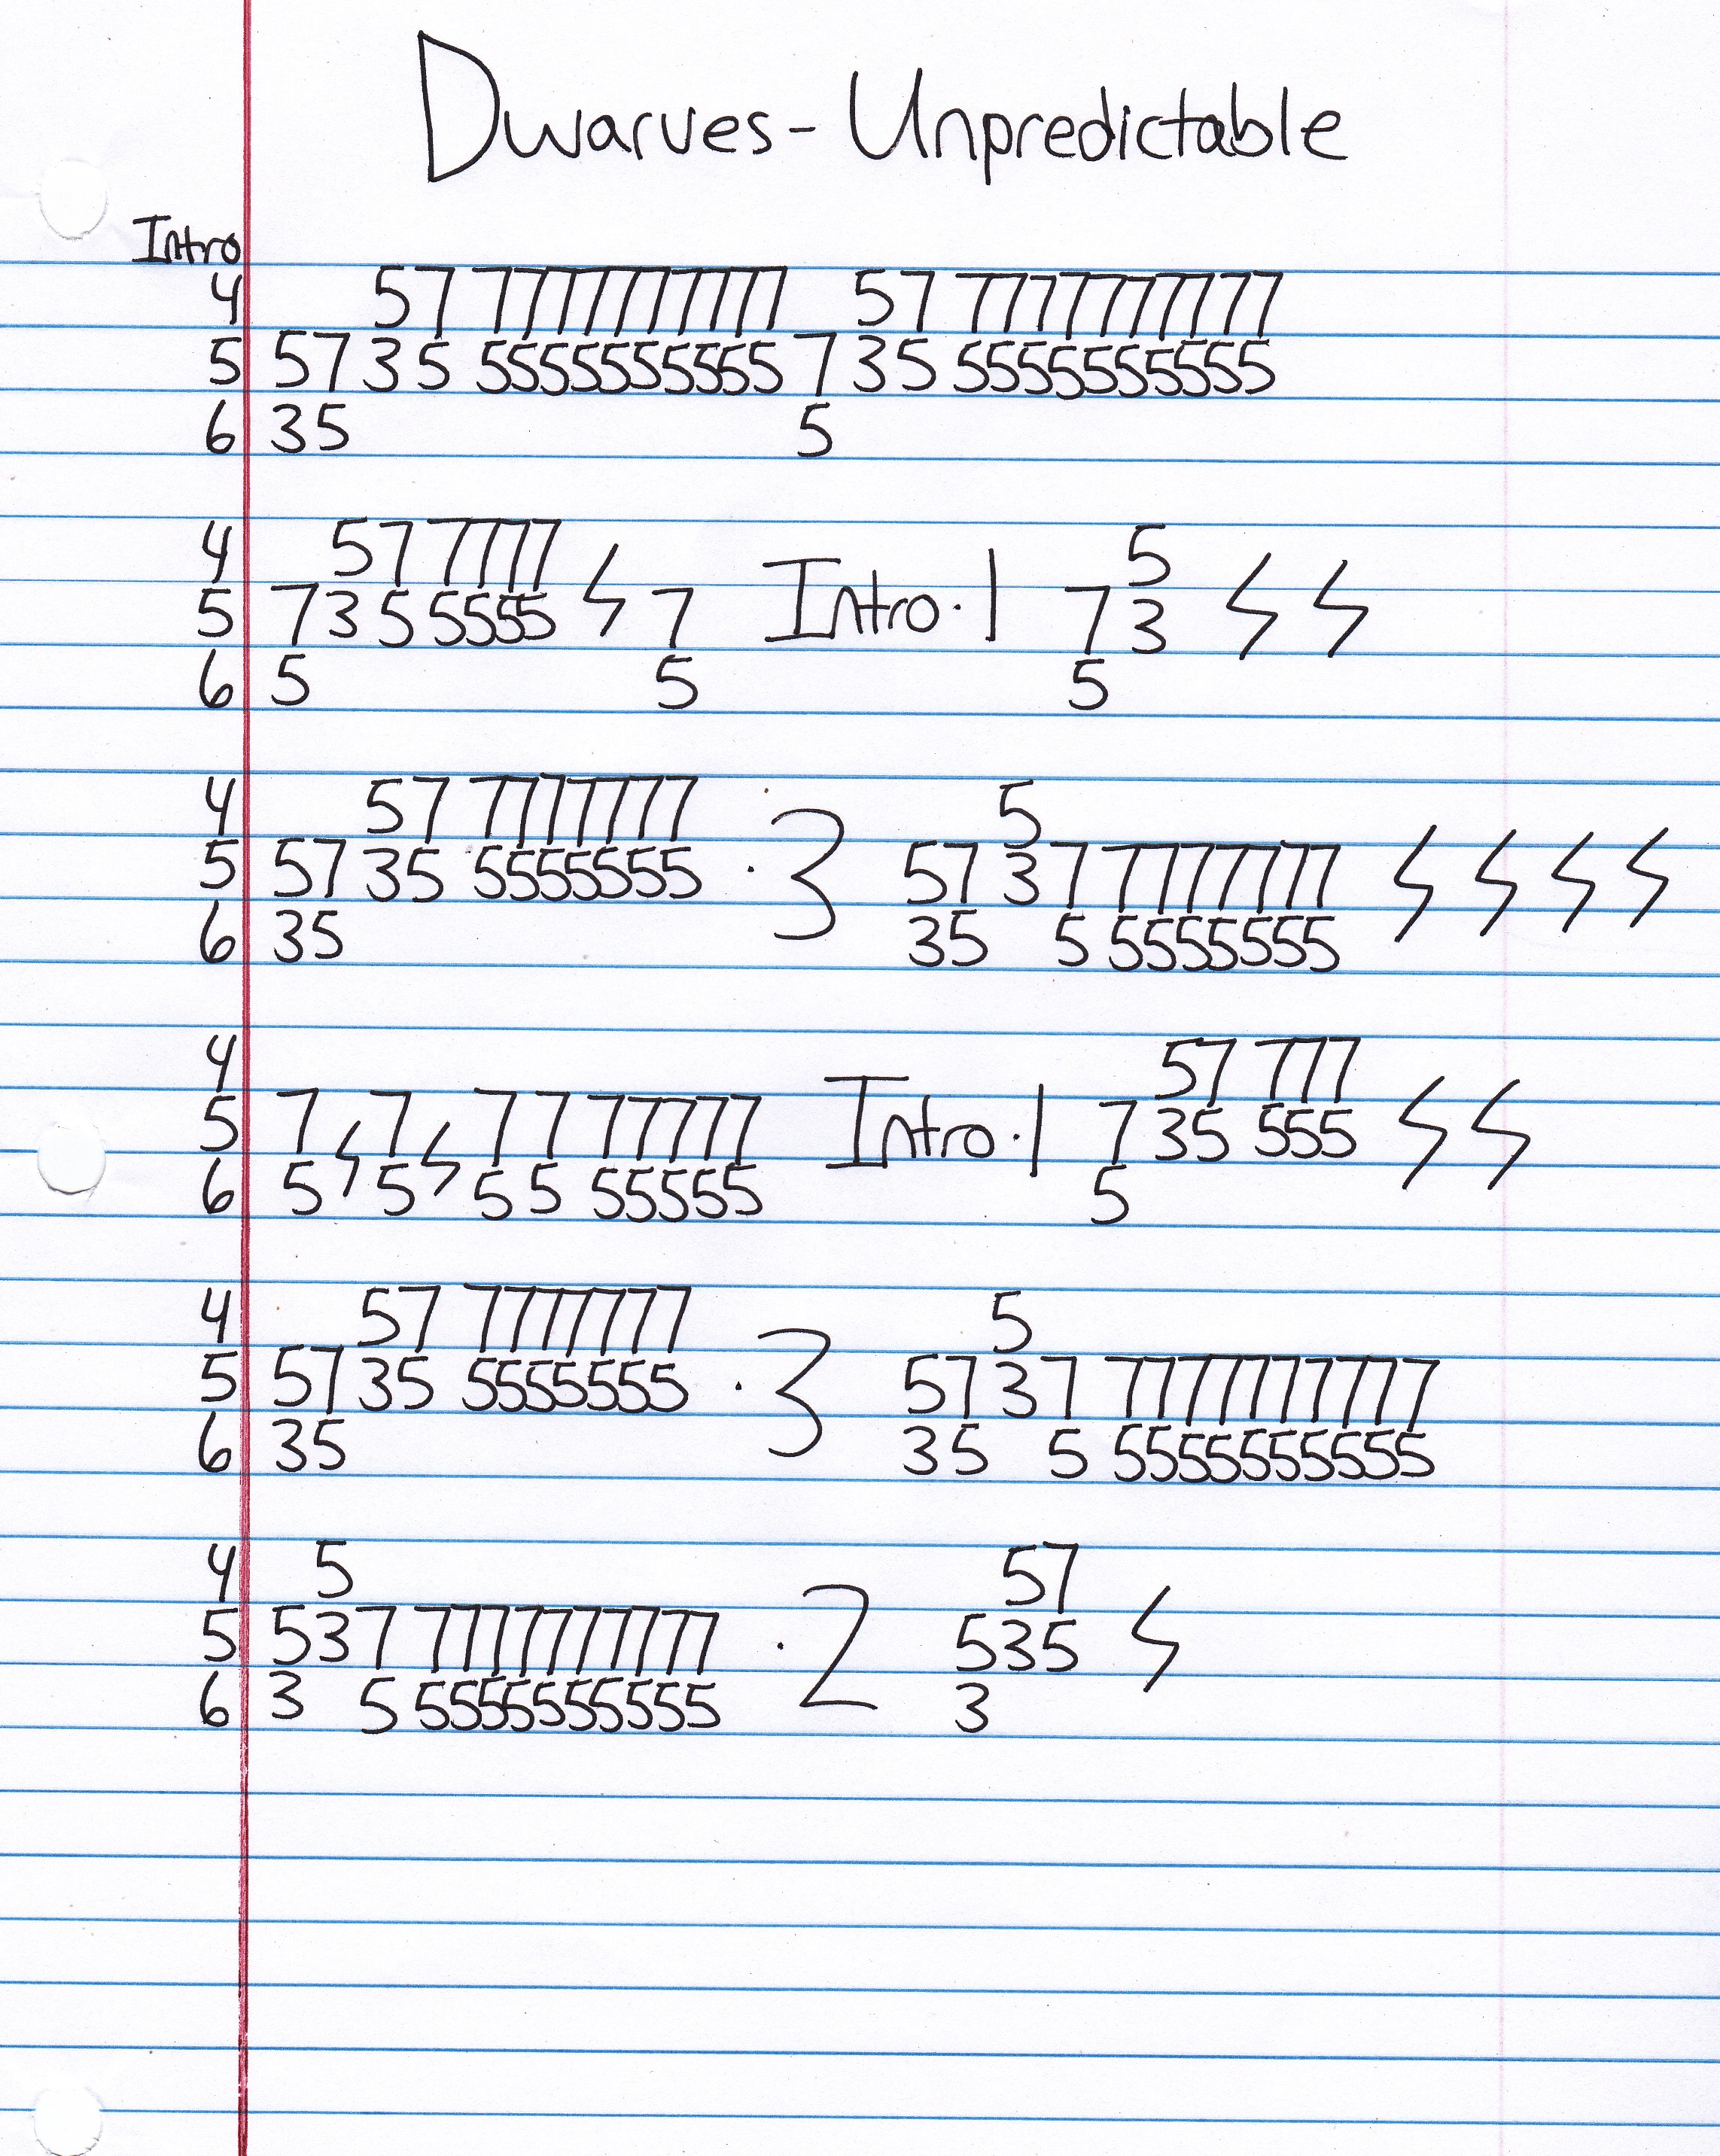 Dwarves - Unpredictable
Intro
4 57 7777777777 57 7777777777
5 57 35 5555555555 7 35 5555555555
6 35 5
4 57 7777 5
5 7 3 5 5555 7 Intro · 1 7 3
6 5 5 5
4 57 7777777 · 3 5
5 57 35 5555555 57 3 7 7777777
6 35 35 5 5555555
4 57 777
5 7 7 7 7 77777 Intro · 1 7 35 555
6 5 5 5 5 55555 5
4 57 7777777 · 3 5
5 57 35 5555555 57 3 7 7777777777
6 35 35 5 5555555555
4 5 57
5 537 7777777777 · 2 535
6 3 5 5555555555 3